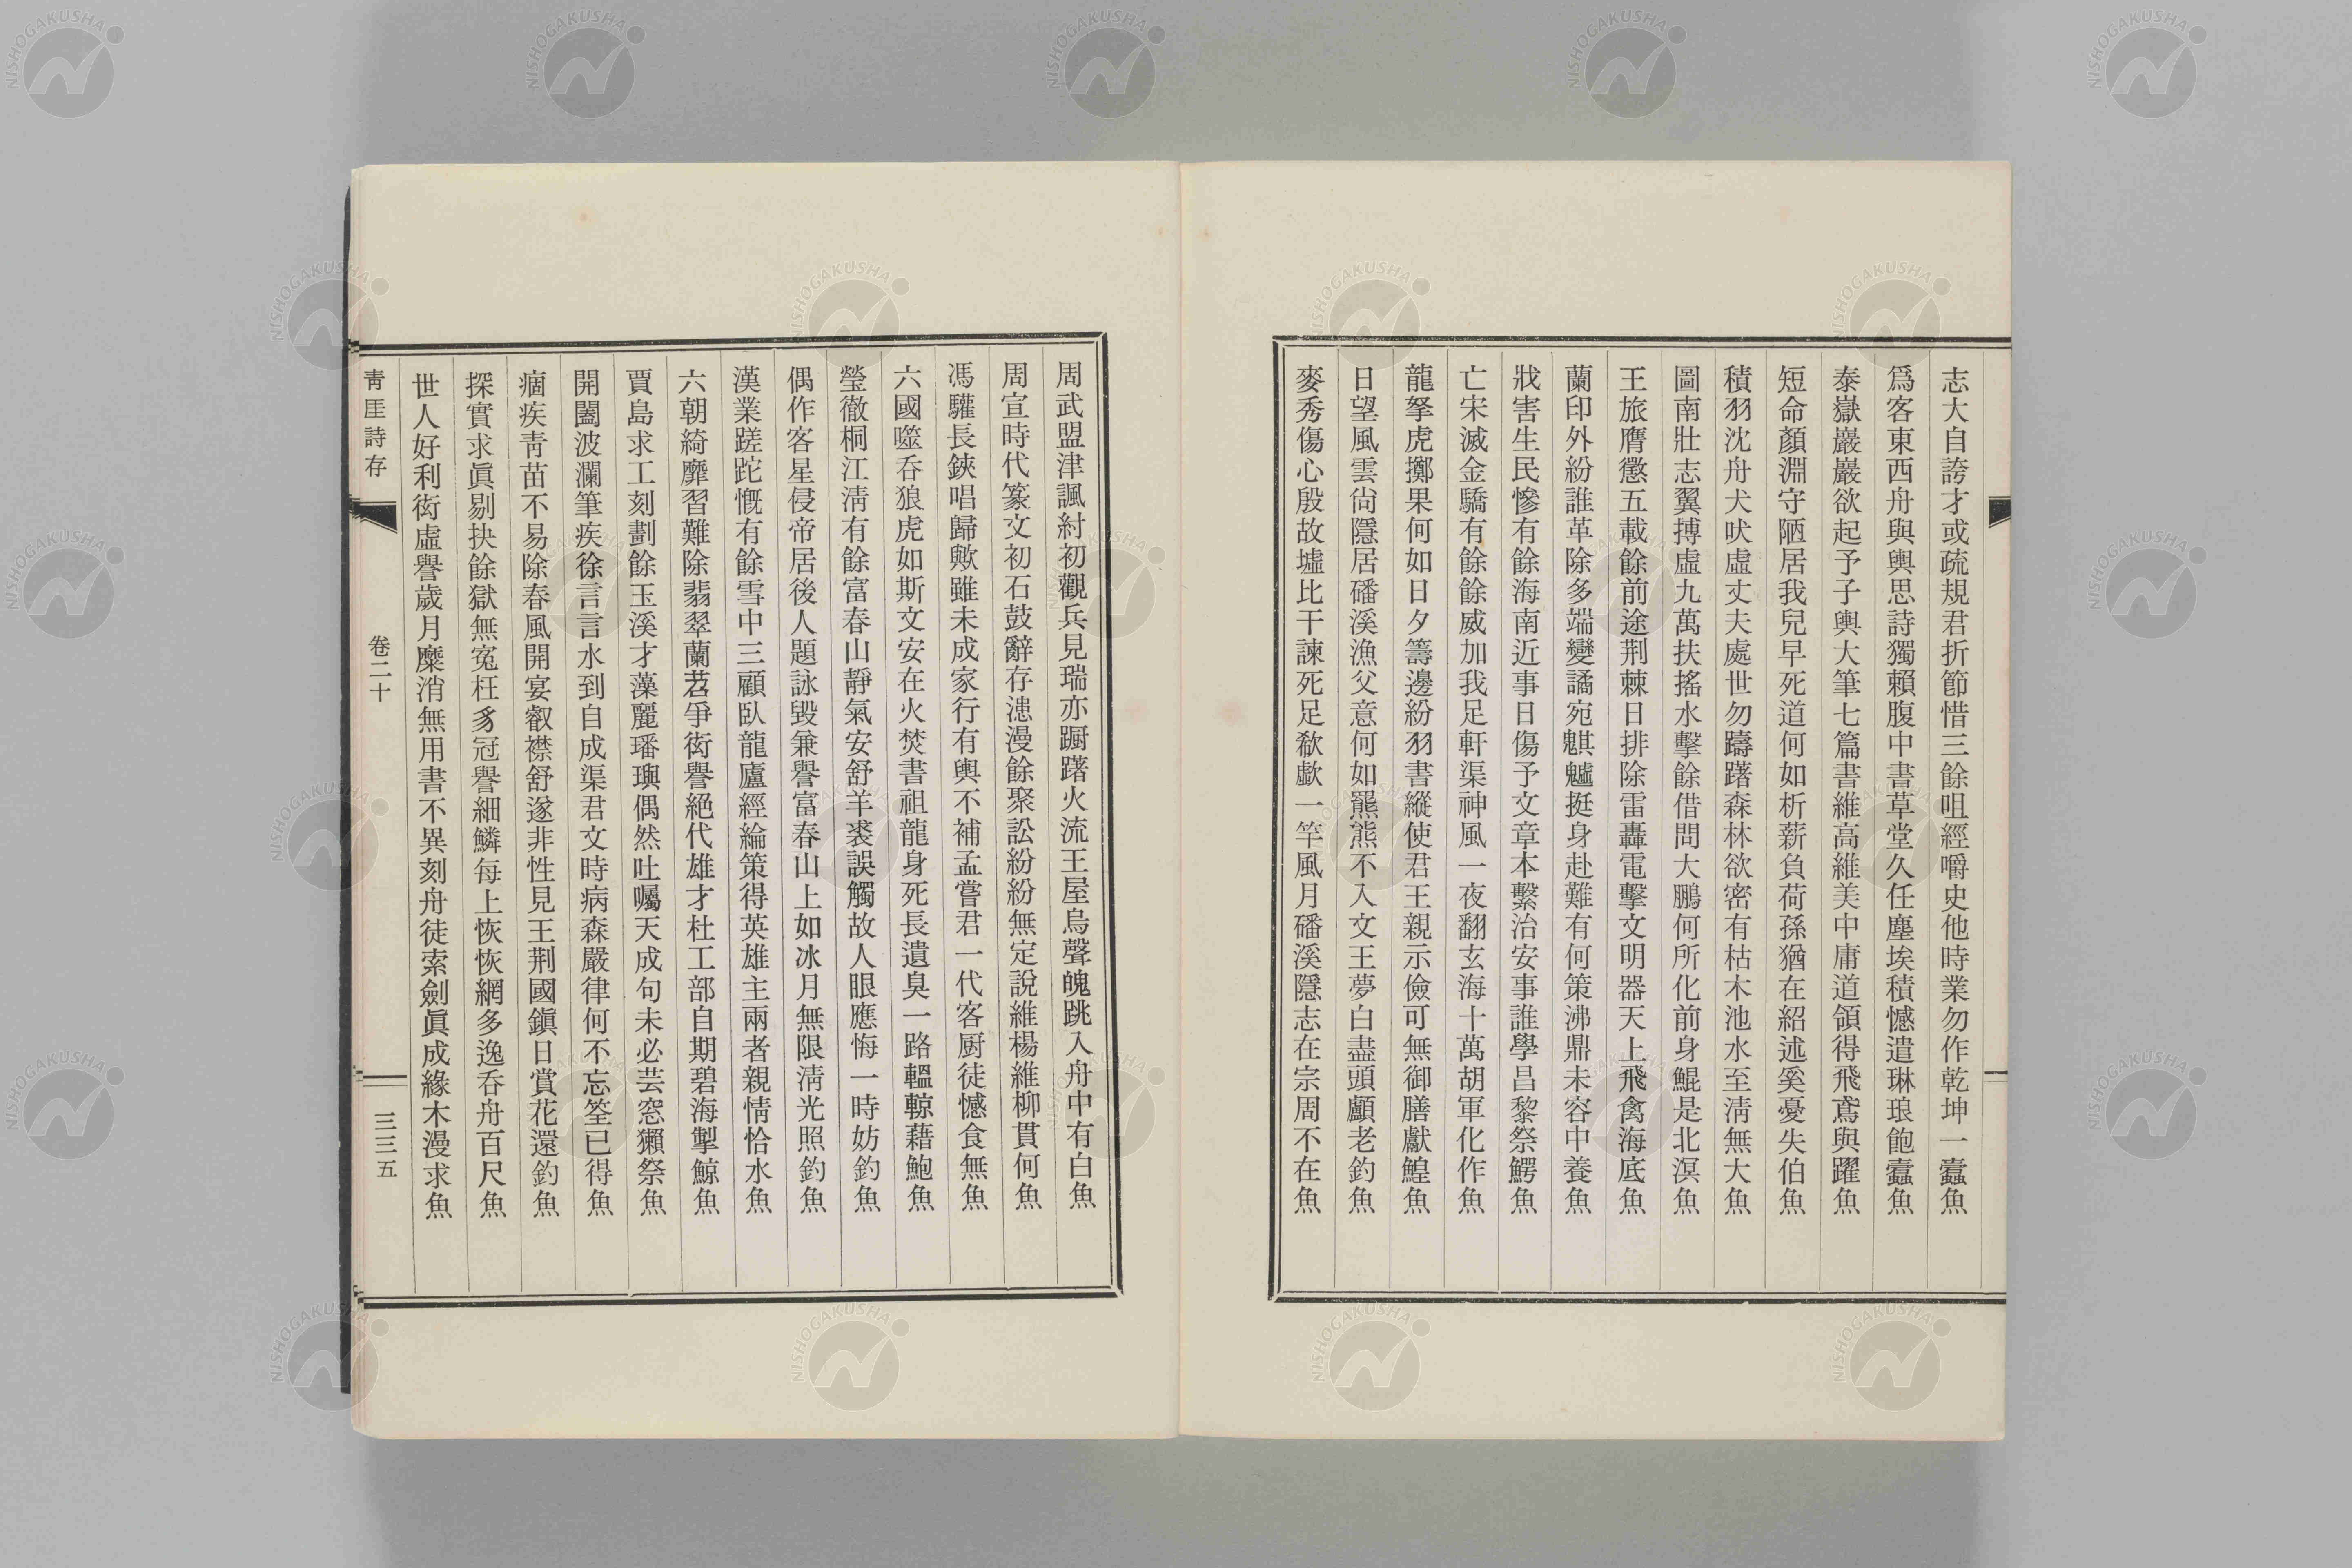 志大自誇才或疏規君折節惜三餘咀經嚼史他時業勿作乾坤一蠹魚
爲客東西舟與輿思詩獨賴腹中書草堂久任塵埃積憾遣琳琅飽蠹魚
泰嶽巖巖欲起予子輿大筆七篇書維高維美中庸道領得飛鳶與躍魚
短命顏淵守陋居我兒早死道何如析薪負荷孫猶在紹述奚憂失伯魚
積羽沈舟犬吠虛丈夫處世勿躊躇森林欲密有枯木池水至淸無大魚
圖南壯志翼搏虛九萬扶搖水擊餘借問大鵬何所化前身鯤是北溟魚
王旅膺懲五載餘前途荆棘日排除雷轟電擊文明器天上飛禽海底魚
蘭印外紛誰革除多端變譎宛魌魖挺身赴難有何策沸鼎未容中養魚
戕害生民慘有餘海南近事日傷予文章本繫治安事誰學昌黎祭鰐魚
亡宋滅金驕有餘餘威加我足軒渠神風一夜翻玄海十萬胡軍化作魚
龍拏虎擲果何如日夕籌邊紛羽書縱使君王親示儉可無御膳獻鰉魚
日望風雲尙隱居磻溪漁父意何如羆熊不入文王夢白盡頭顱老釣魚
麥秀傷心殷故墟比干諫死足欷歔一竿風月磻溪隱志在宗周不在魚
周武盟津諷紂初觀兵見瑞亦蹰躇火流王屋烏聲魄跳入舟中有白魚
周宣時代篆文初石鼓辭存漶漫餘聚訟紛紛無定說維楊維柳貫何魚
馮驩長鋏唱歸歟雖未成家行有輿不補孟嘗君一代客厨徒憾食無魚
六國噬呑狼虎如斯文安在火焚書祖龍身死長遺臭一路轀輬藉鮑魚
瑩徹桐江淸有餘富春山靜氣安舒羊裘誤觸故人眼應悔一時妨釣魚
偶作客星侵帝居後人題詠毀兼譽富春山上如冰月無限淸光照釣魚
漢業蹉跎慨有餘雪中三顧臥龍廬經綸策得英雄主兩者親情恰水魚
六朝綺靡習難除翡翠蘭苕爭衒譽絕代雄才杜工部自期碧海掣鯨魚
賈島求工刻劃餘玉溪才藻麗璠璵偶然吐囑天成句未必芸窓獺祭魚
開闔波瀾筆疾徐言言水到自成渠君文時病森嚴律何不忘筌已得魚
痼疾靑苗不易除春風開宴叡襟舒遂非性見王荆國鎭日賞花還釣魚
探實求眞剔抉餘獄無寃枉豸冠譽細鱗每上恢恢網多逸呑舟百尺魚
世人好利衒虛譽歲月糜消無用書不異刻舟徒索劍眞成緣木漫求魚
靑厓詩存
卷二十
三三五
NISHOGAKUSHA